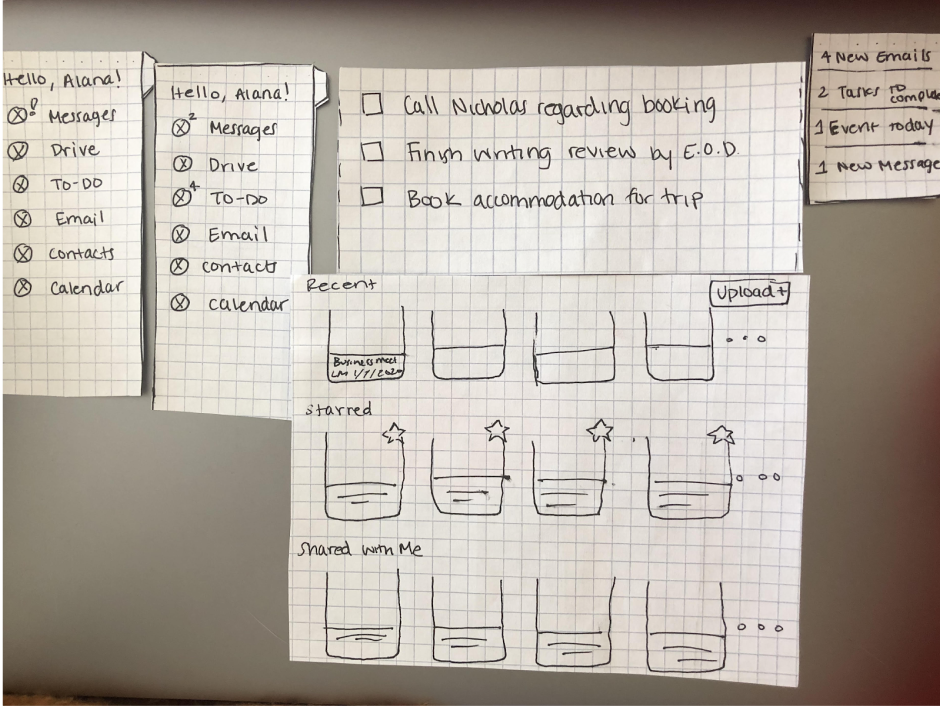 Hello, Alana!
! Messages
Drive
TO-DO
Email
Contacts
Calendar
Hello, Alana!
2 Messages
Drive
4 TO-DO
Email
contacts
calendar
Call Nicholas regarding booking
Finish writing review by E.O.D.
Book accommodation for trip
4 New Emails
2 Tasks to
complete
1 Event today
1 New Message
Recent
Upload+
Business meet
LM 1/7/2020
Starred
Shared with Me